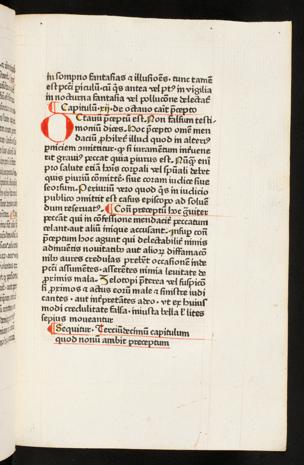 in sompno fantasias ⁊ illusiões · tunc tamē
est pctī piculū cū q̄s antea vel pꝰ in vigilia
in nocturna fantasia vel pollucōne delectat᷑
Capitulū · xij · de octauo cauī p̄cepto
Octauū p̄ceptū est · Non falsum testi-
moniū dices · Hoc p̄cepto om̄e men
daciū phibet᷑ illud quod in alteri⁹
pniciem ōmittitur · ⁊ si iuramētum inteue
rit grauiꝰ peccat quia piurus est ·
pro salute etiā hoīs corpali vel sp̄uali debet
quis piuriū cōmitte᷑ siue coram iudice siue
seorsum · Periuriū vero quod q̄s in iudicio
publico ōmittit est casus episcopo ad soluē
dum reseruatꝰ · Cont̄ preceptū hoc
peccāt qui in cōfessione mendaciē peccatum
celant aut aliū inique accusant · Insup con̄
p̄ceptum hoc agunt qui delectabilē nimis
admuētis nouitatib aut alioꝝ diffamacō
nib aures credulas prebent occasionē inde
pctī assumētes · asserētes nimia leuitate de
primis mala · Zelotopi p̄terea vel suspico
si primos ⁊ actus eorū male ⁊ sinistre iudi
cantes · aut interpretātes adeo · vt ex huiꝰ
modi credulitate falsa · iniusta bella l' lites
sepius moueantur
Sequitur · Terciūdecimū capitulum
quod nonū ambit preceptum